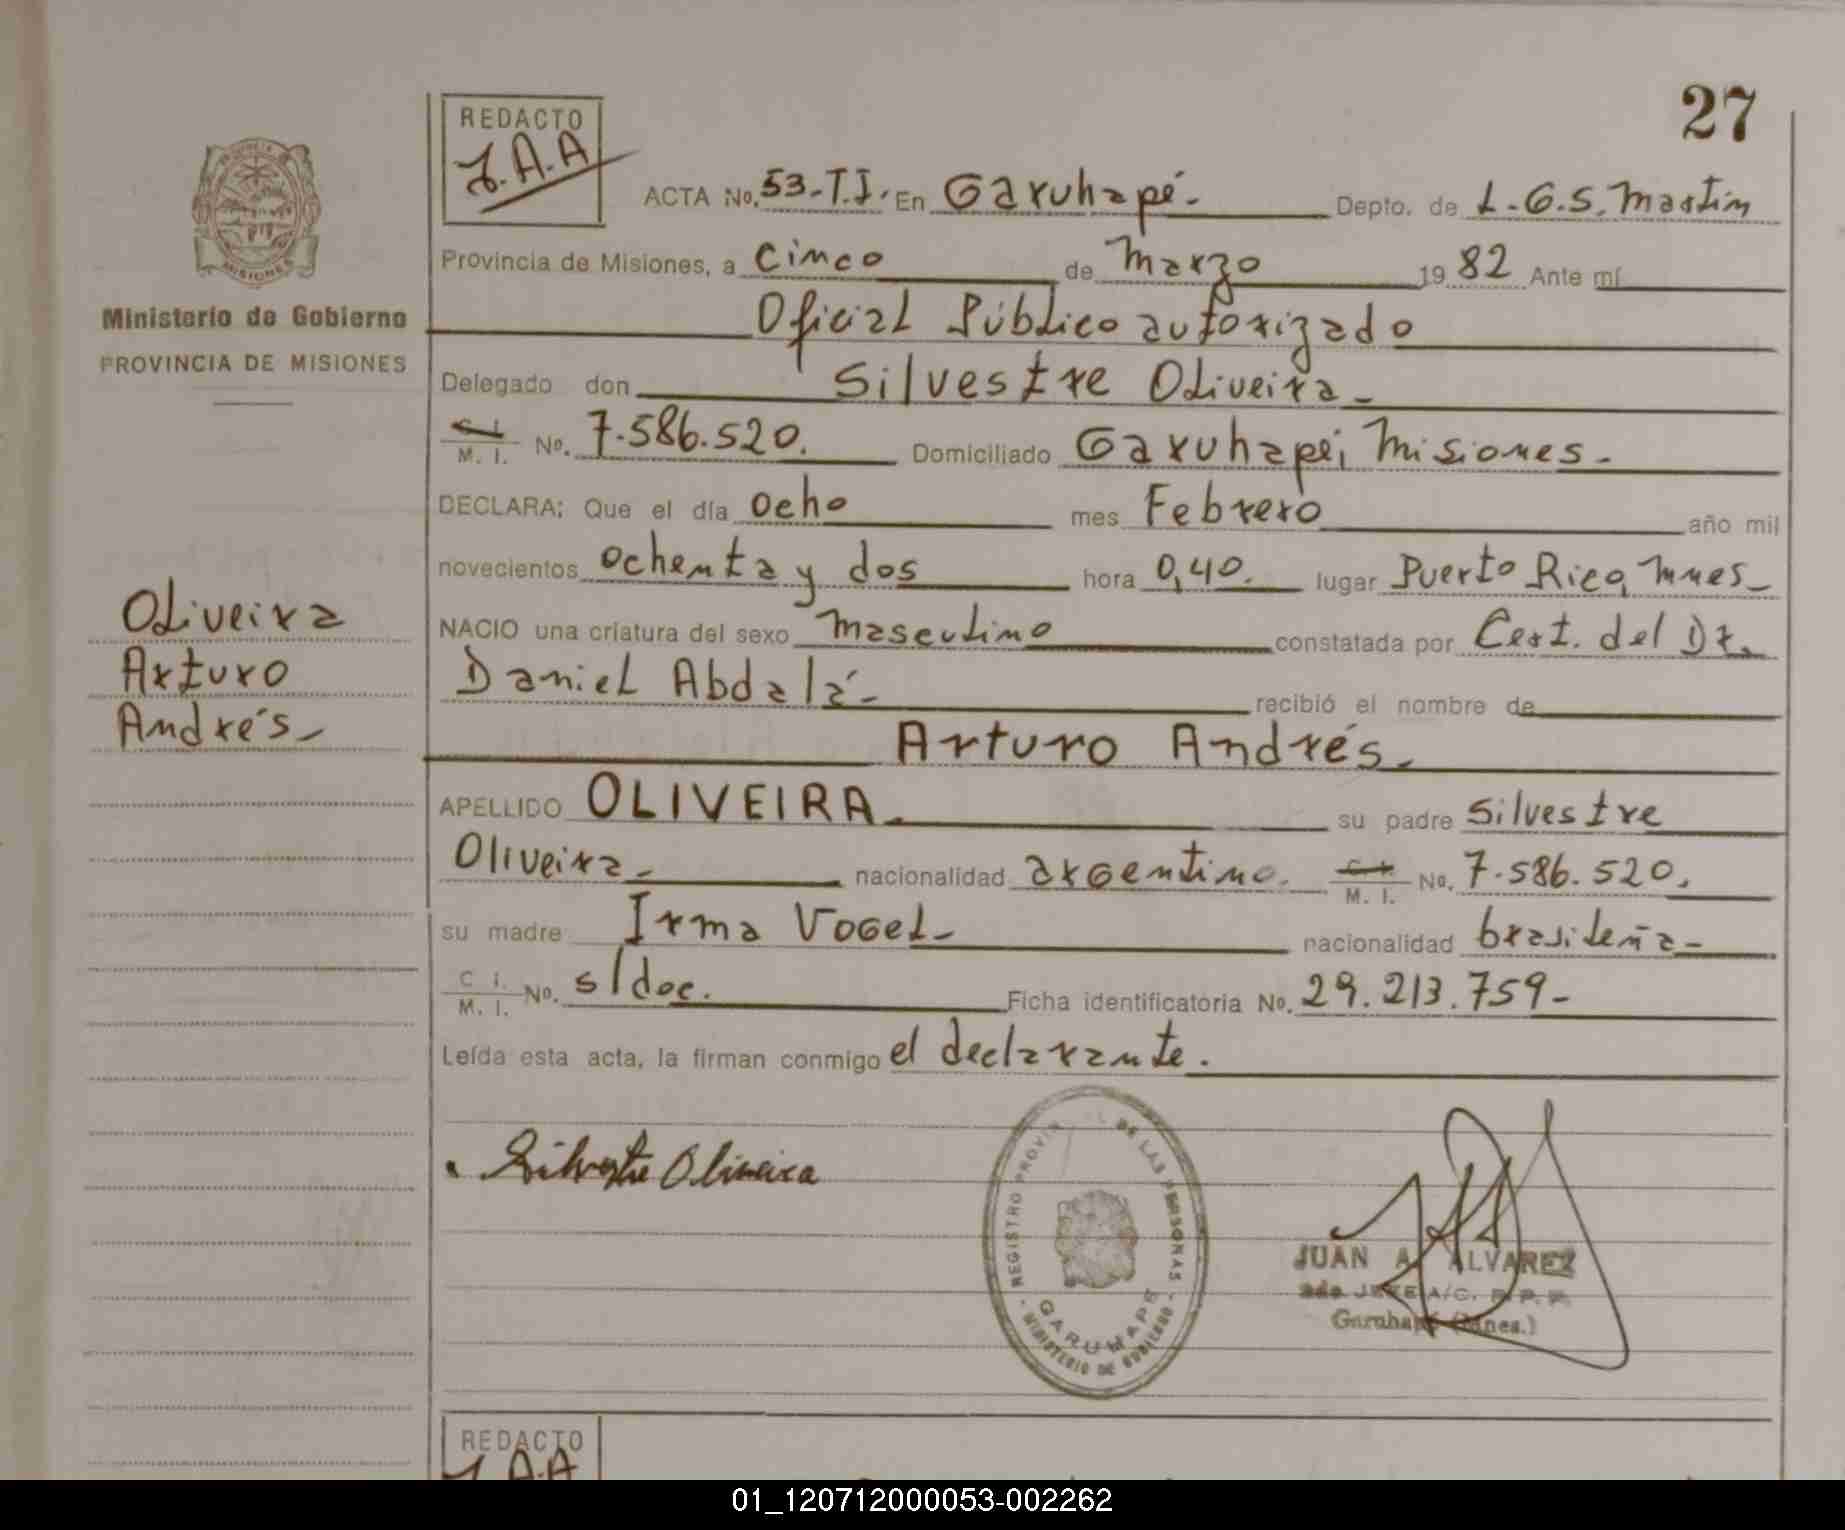 27
REDACTO
J.A.A
ACTA No. 53-T.I. En Garuhapé- Depto. de L.G.S. Martin
PROVINCIA DE MISIONES
Provincia de Misiones, a cinco de Marzo 19 82 Ante mí
Ministerio de Gobierno
PROVINCIA DE MISIONES
Oficial Público autorizado
Delegado don Silvestre Oliveira-
C. I. M. I. No. 7.586.520. Domiciliado Garuhapé, Misiones-
DECLARA: Que el día ocho mes Febrero año mil
novecientos ochenta y dos hora 0,40. lugar Puerto Rico, Mnes-
Oliveira
Arturo
Andrés-
NACIO una criatura del sexo masculino constatada por Cert. del Dr.
Daniel Abdalá- recibió el nombre de
Arturo Andrés-
APELLIDO OLIVEIRA- su padre Silvestre
Oliveira- nacionalidad argentino. C. I. M. I. No. 7.586.520.
su madre Irma Vogel- nacionalidad brasileña-
C. I. M. I. No. s/doc. Ficha identificatoria No. 29.213.759-
Leída esta acta, la firman conmigo el declarante.
Silvestre Oliveira
REGISTRO PROVINCIAL DE LAS PERSONAS
GARUHAPE
- MINISTERIO DE GOBIERNO -
JUAN A. ALVAREZ
2do. JEFE A/C. R. P. P.
Garuhapé (Mnes.)
REDACTO
J.A.A
01_120712000053-002262